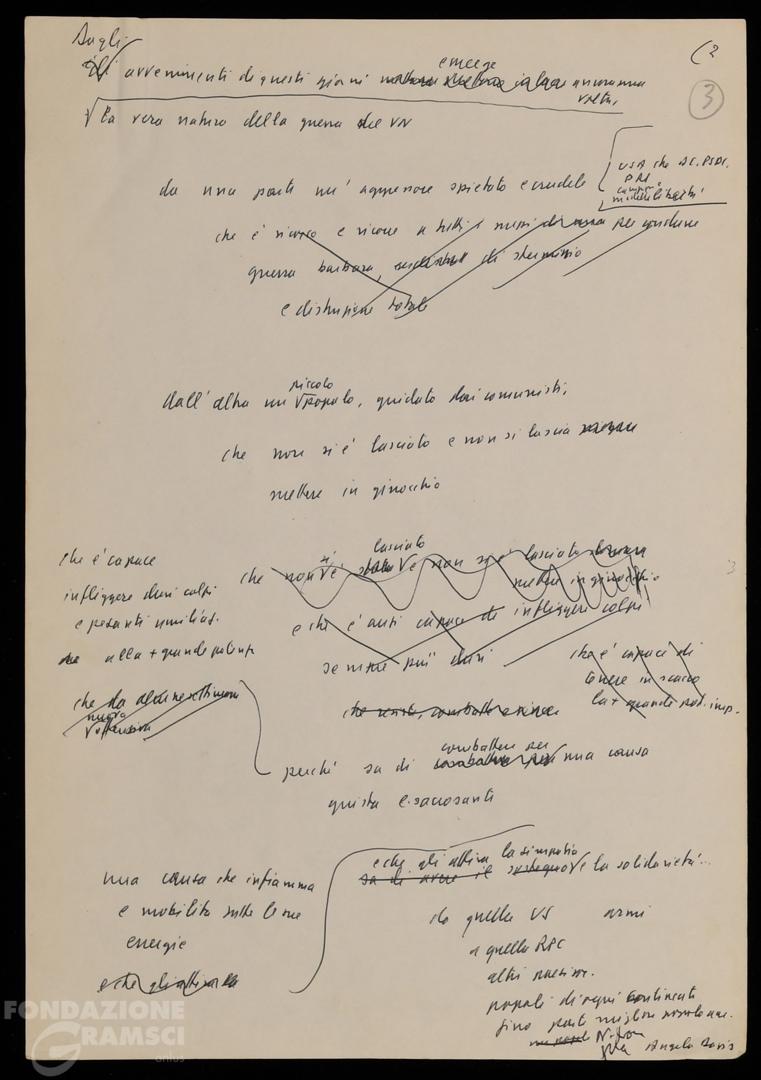 Dagli
Gli avvenimenti di questi giorni emerge ancora una
volta,
(2
3
√ la vera natura della guerra del VN
da una parte un' aggressore spietato e crudele
USA che DC. PSDI.
PRI
che è ricorso e ricorre a tutti i mezzi di per condurre
guerra barbara, di sterminio
e distruzione totale
dall'altra un √popolo, guidato dai comunisti,
piccolo
che non si è lasciato e non si lascia
mettere in ginocchio
che è capace
infliggere duri colpi
e pesanti umiliaz.
alla + grande potenza
che da altre settimane
nuova
√ offensiva
che non √è √e non si è lasciato
si
lasciato
mettere in ginocchio
e che è anzi capace di infliggere colpi
sempre più duri
che è capace di
tenere in scacco
la + grande pot. imp.
che resiste, combatte e vince
perché sa di combattere per una causa
combattere per
giusta e sacrosanta
una causa che infiamma
e mobilita tutte le sue
energie
e che gli attira la
e che gli attira la simpatia
sa di avere il sostegno √e la solidarietà...
da quella US armi
a quella RPC
altri paesi
popoli di ogni continente
fino parte migliore popolo am.
Nixon
Angela Davis
FONDAZIONE
GRAMSCI
onlus